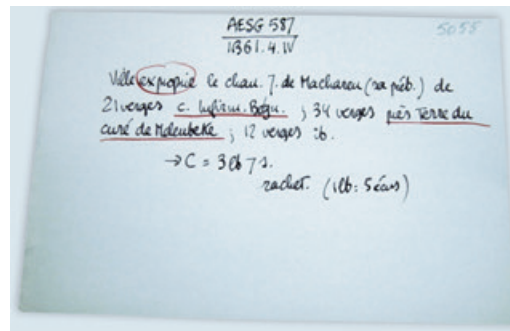 AESG 587
1361.4.IV
5055
Ville exproprie le chan. J. de Macharen (sa préb.) de
21 verges c. Infirm. Begu. ; 34 verges près Terre du
curé de Meleubeke ; 12 verges ib.
→ C = 3 lb 7 s.
rachet. (1 lb : 5 écus)